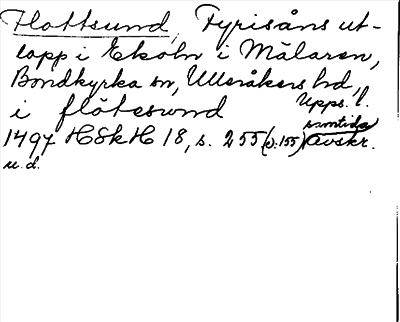 Flottsund, Fyrisåns ut-
lopp i Ekoln i Mälaren,
Bondkyrka sn, Ulleråkers hd,
i flötesund Upps. l.
samtida
1497 HSkH 18, s. 255 (o: 155) avskr.
u. d.